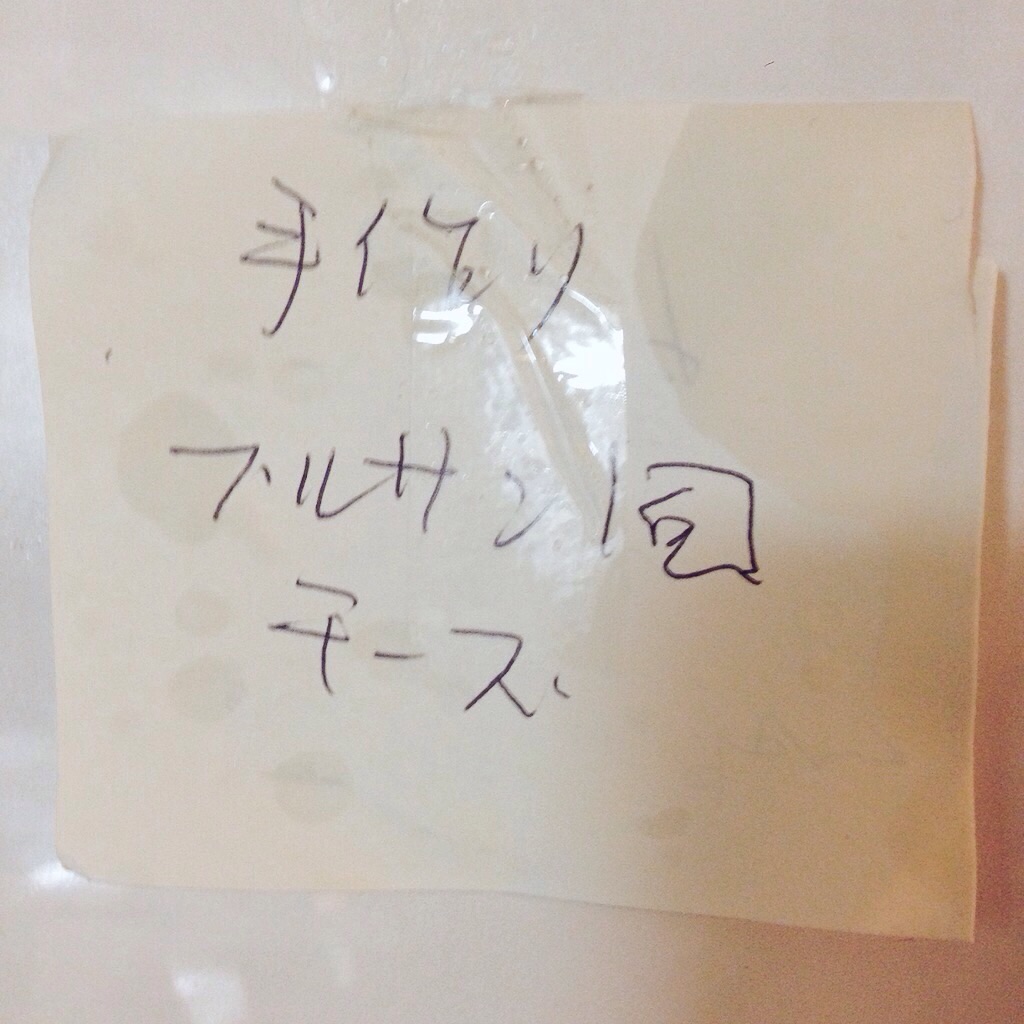 手作り
ブルサン風
チーズ